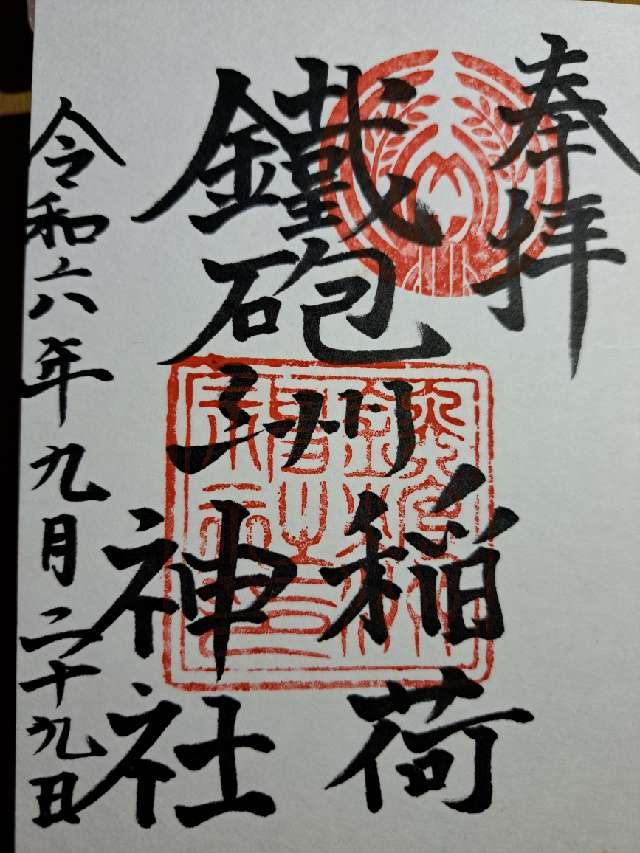 奉拝
鐵砲洲稲荷
神社
令和六年九月二十九日